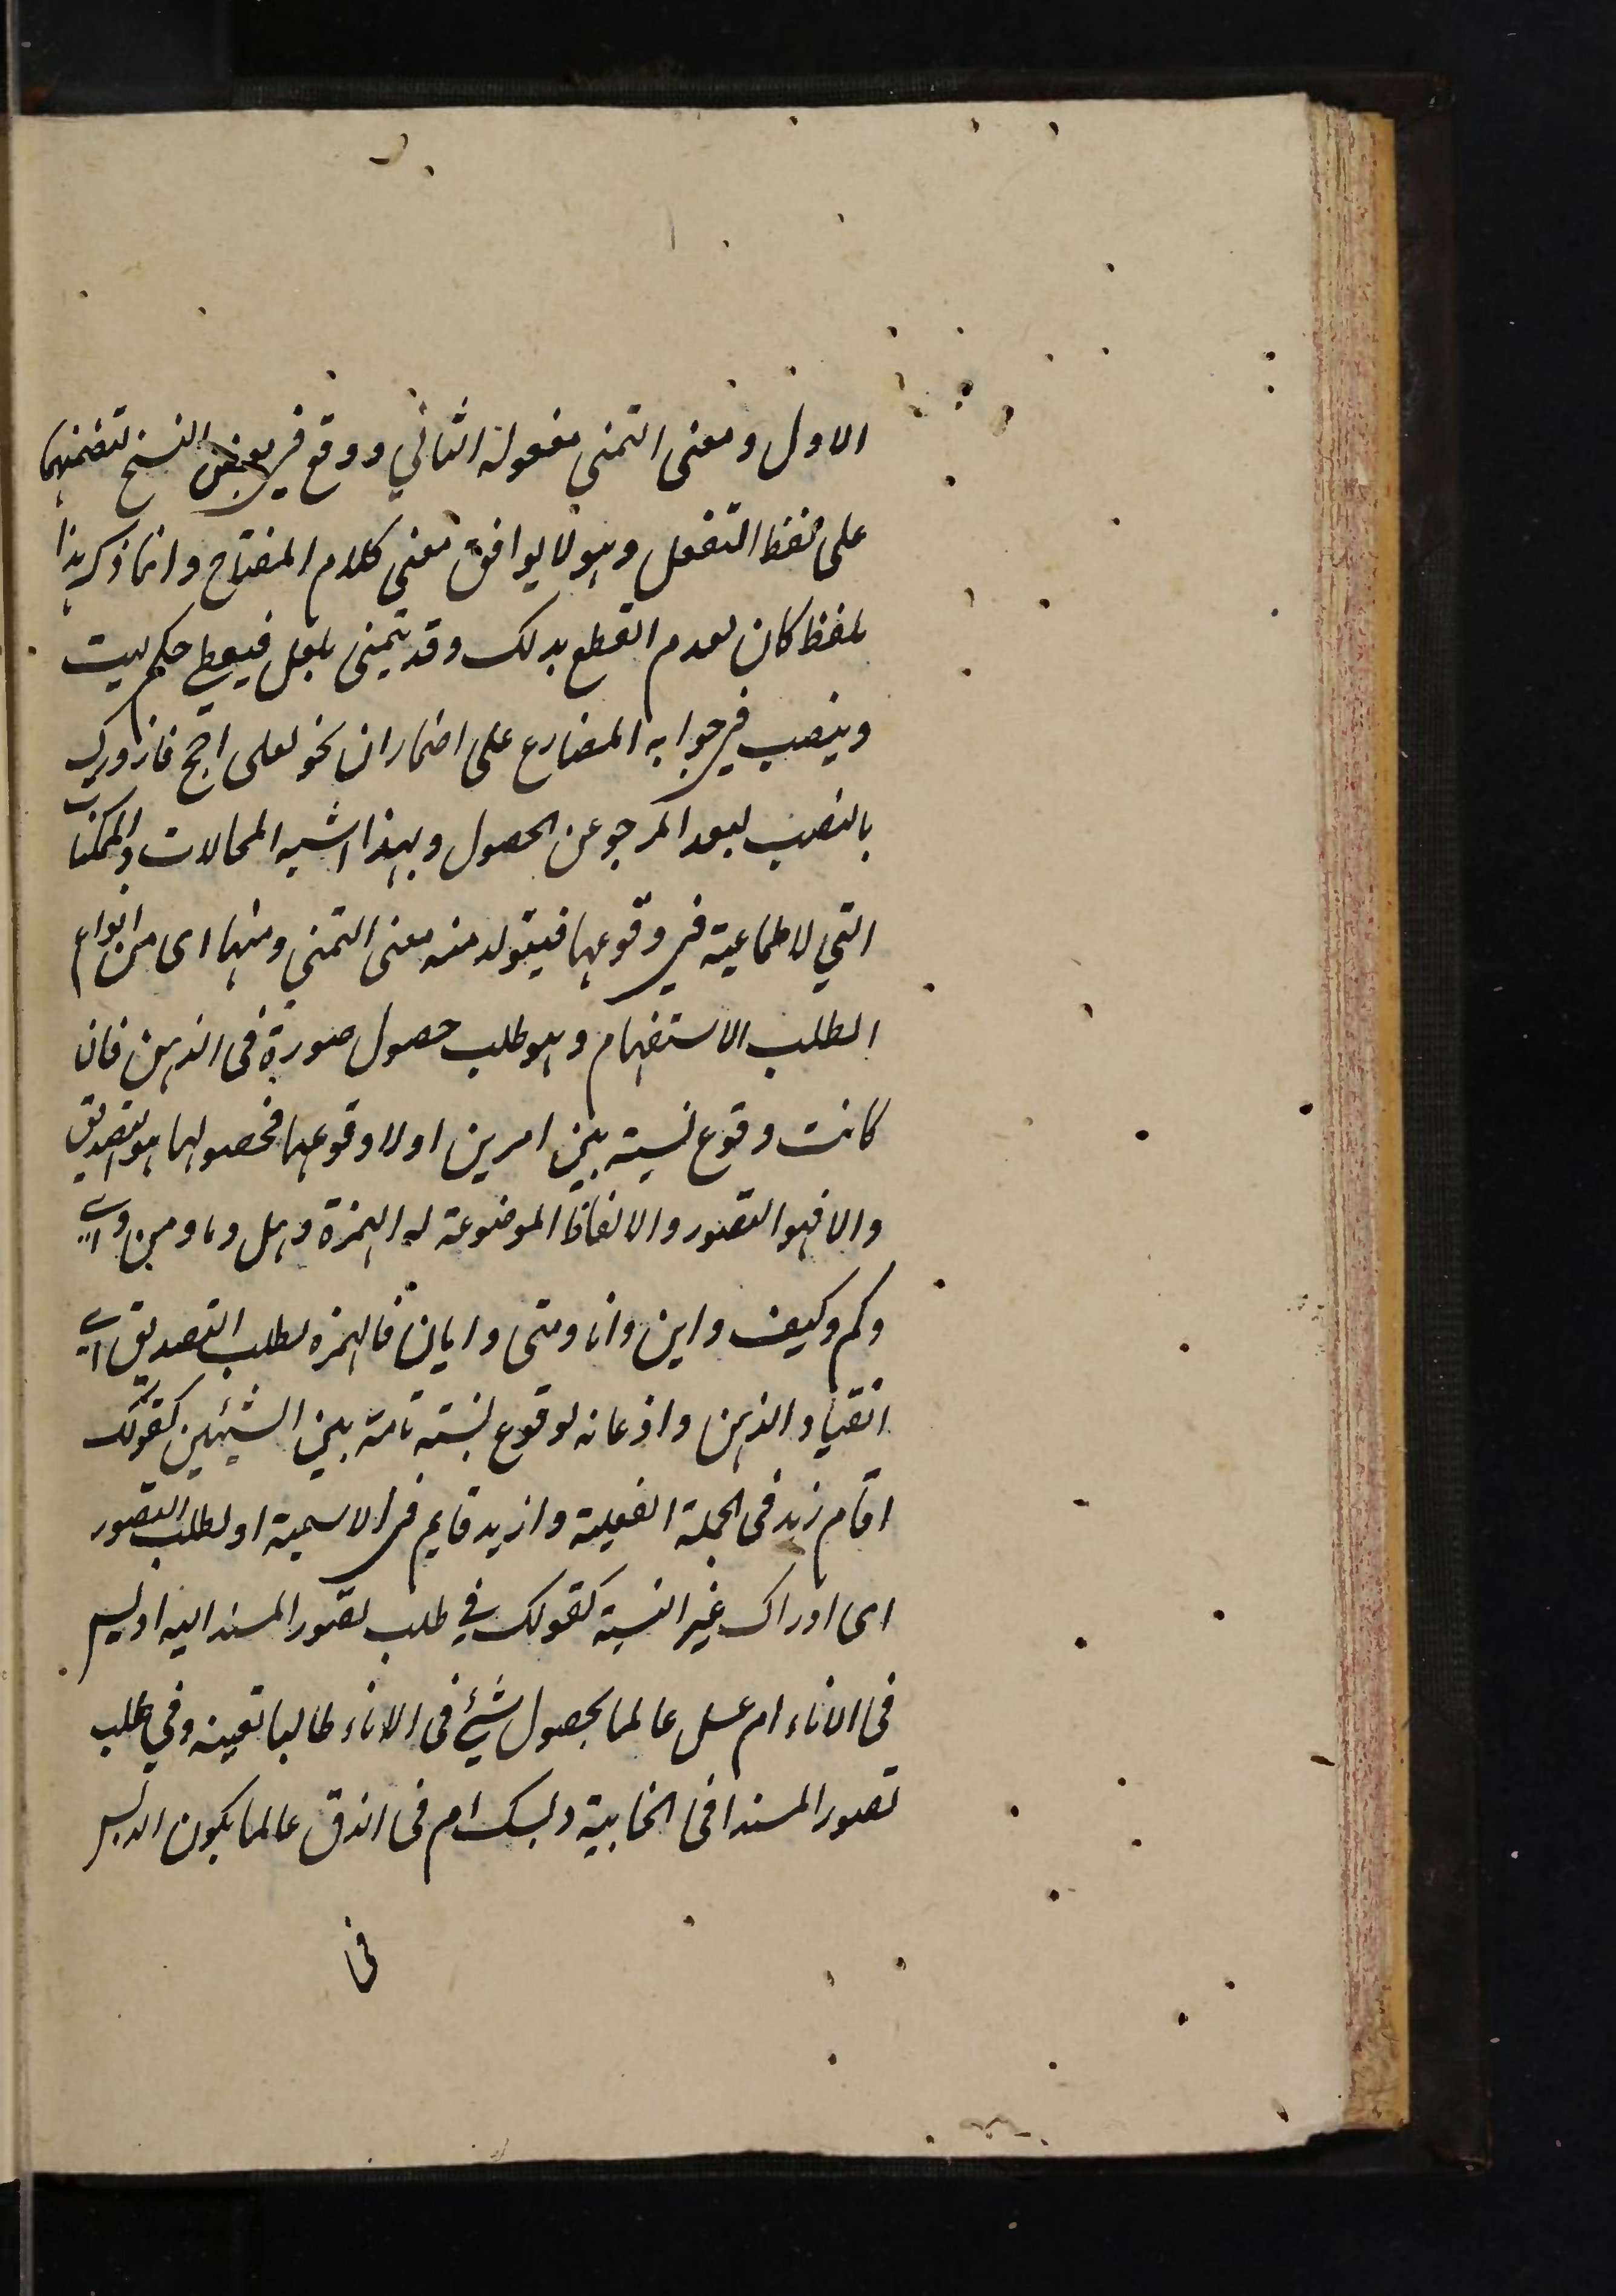 الاول ومعنى التمني مفعوله الثاني ووقع في بعض النسخ لتضمنهما
على لفظ التفعل وهو لا يوافق معنى كلام المفتاح وانما ذكر هذا
بلفظ كان لعدم القطع بذلك وقد يتمنى بلعل فيعطى حكم ليت
وينصب في جوابه المضارع على اضمار ان نحو لعلى احج فازورك
بالنصب لبعد المرجو عن الحصول وبهذا اشبه المحالات والممكنات
التي لا طماعية في وقوعها فيتولد منه معنى التمني ومنها اى من انواع
الطلب الاستفهام وهو طلب حصول صورة فى الذهن فان
كانت وقوع نسبة بين امرين اولا وقوعها فحصولها هو التصديق
والا فهو التصور والالفاظ الموضوعة له الهمزة وهل وما ومن واى
وكم وكيف واين وانا ومتى وايان فالهمزه لطلب التصديق اى
انقياد الذهن واذعانه لوقوع نسبته تامة بين الشيئين كقولك
اقام زيد فى الجملة الفعلية وازيد قايم في الاسمية او لطلب التصور
اى ادراك غير النسبة كقولك في طلب تصور المسند اليه ادبس
فى الاناء ام عسل عالما بحصول شيئ فى الاناء طالبا تعينه وفي طلب
تصور المسند افى الخابية دبسك ام فى الزق عالما بكون الدبس
فى